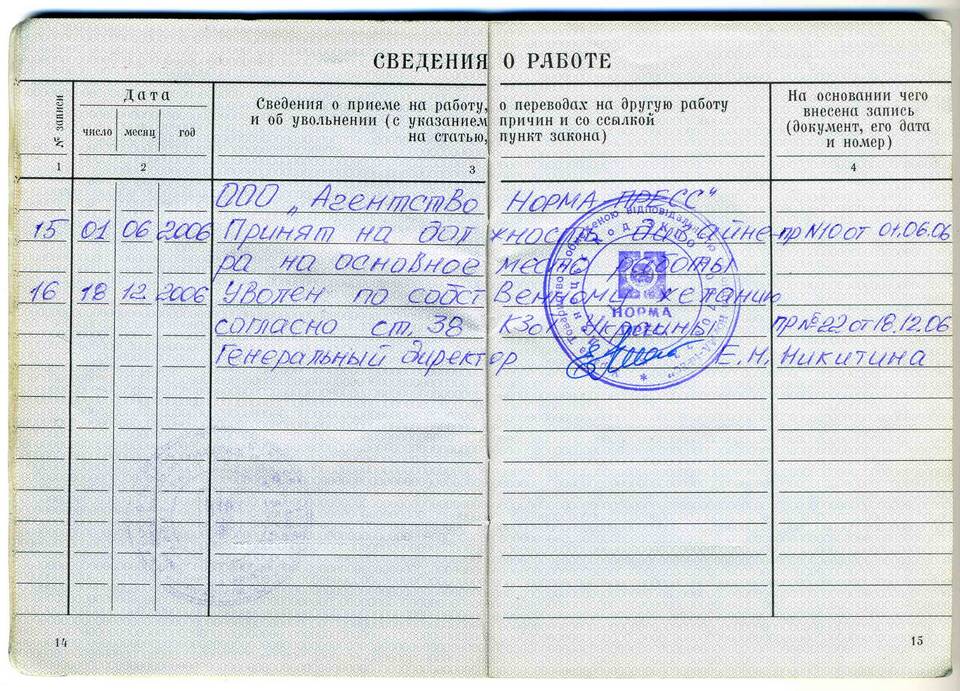 СВЕДЕНИЯ О РАБОТЕ
№ записи
Дата
число месяц год
Сведения о приеме на работу, о переводах на другую работу
и об увольнении (с указанием причин и со ссылкой
на статью, пункт закона)
На основании чего
внесена запись
(документ, его дата
и номер)
1 2 3 4
ООО „Агентство НОРМА-ПРЕСС"
15 01 06 2006 Принят на должность дизайне- пр N10 от 01.06.06
ра на основное место работы
16 18 12 2006 Уволен по собственному желанию
согласно ст. 38 КЗоТ Украины пр №22 от 18.12.06
Генеральный директор Е.Н. Никитина
НОРМА
14
15